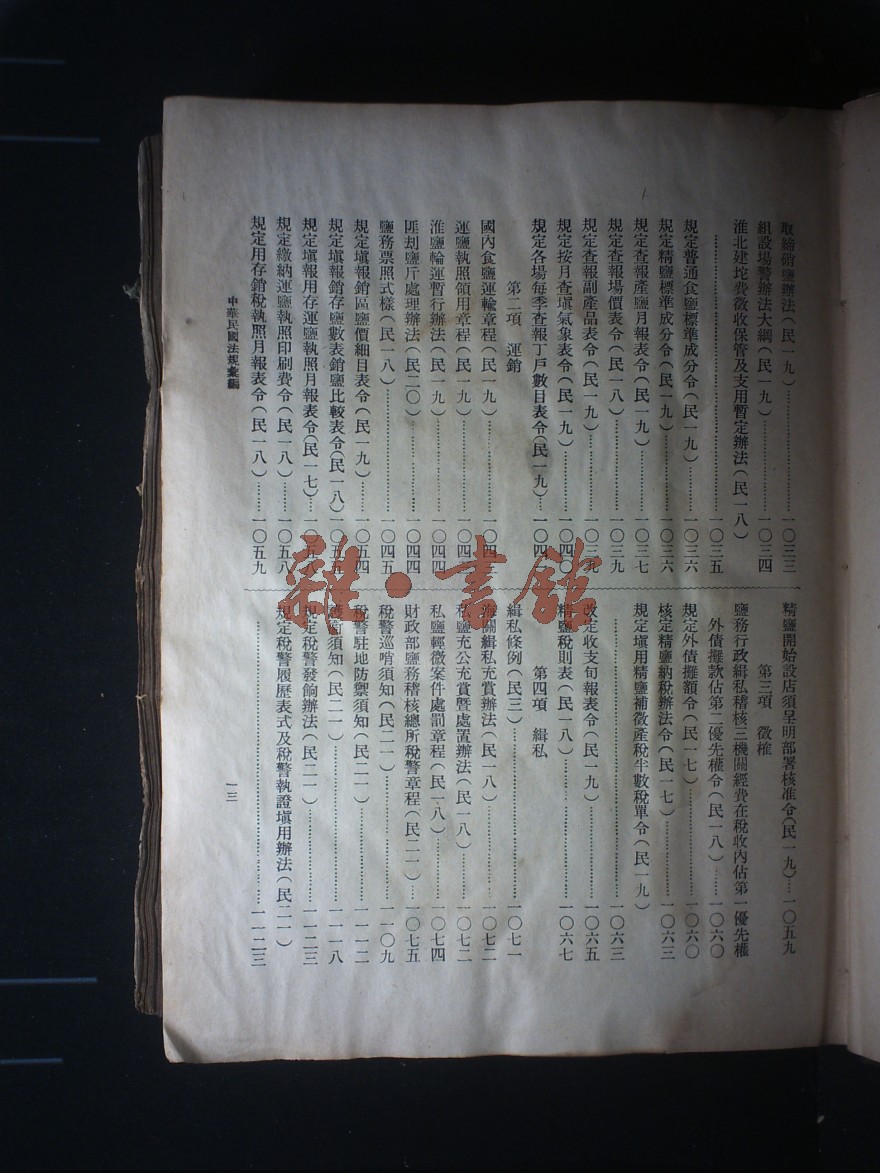 取締硝鹽辦法(民一九)……一〇三三
組設場警辦法大綱(民一九)……一〇三四
淮北建坨費徵收保管及支用暫定辦法(民一八)
……一〇三五
規定普通食鹽標準成分令(民一九)……一〇三六
規定精鹽標準成分令(民一九)……一〇三六
規定查報產鹽月報表令(民一九)……一〇三七
規定查報場價表令(民一八)……一〇三九
規定查報副產品表令(民一九)……一〇三九
規定按月查塡氣象表令(民一九)……一〇四〇
規定各場每季查報丁戶數目表令(民一九)……一〇四二
第二項 運銷
國內食鹽運輸章程(民一九)……一〇四三
運鹽執照領用章程(民一九)……一〇四四
淮鹽輪運暫行辦法(民一九)……一〇四四
匪刦鹽斤處理辦法(民二〇)……一〇四四
鹽務票照式樣(民一八)……一〇四五
規定塡報銷區鹽價細目表令(民一九)……一〇五四
規定塡報銷存鹽數表銷鹽比較表令(民一八)一〇五五
規定塡報用存運鹽執照月報表令(民一七)……一〇五八
規定繳納運鹽執照印刷費令(民一八)……一〇五八
規定用存銷稅執照月報表令(民一八)……一〇五九
精鹽開始設店須呈明部署核准令(民一九)……一〇五九
第三項 徵榷
鹽務行政緝私稽核三機關經費在稅收內佔第一優先權
外債攤款佔第二優先權令(民一八)……一〇六〇
規定外債攤額令(民一七)……一〇六〇
核定精鹽納稅辦法令(民一七)……一〇六三
規定塡用精鹽補徵產稅半數稅單令(民一九)
……一〇六三
改定收支旬報表令(民一九)……一〇六五
精鹽稅則表(民一八)……一〇六七
第四項 緝私
緝私條例(民三)……一〇七一
海關緝私充賞辦法(民一八)……一〇七二
私鹽充公充賞暨處置辦法(民一八)……一〇七二
私鹽輕微案件處罰章程(民一八)……一〇七四
財政部鹽務稽核總所稅警章程(民二一)……一〇七五
稅警巡哨須知(民二一)……一一〇九
稅警駐地防禦須知(民二一)……一一一二
護衛須知(民二一)……一一一八
規定稅警發餉辦法(民二一)……一一二三
規定稅警履歷表式及稅警執證塡用辦法(民二一)
……一一二三
中華民國法規彙編
一三
雜·書館